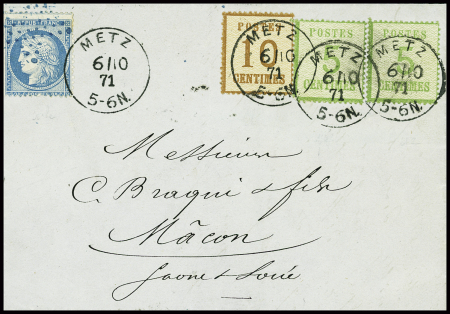 METZ
6/10
71
5-6N.
POSTES
10
CENTIMES
METZ
6/10
71
5-6N.
POSTES
5
CENTIMES
METZ
6/10
71
5-6N.
POSTES
5
CENTIMES
METZ
6/10
71
5-6N.
Messieurs
C. Braqui & fils
Mâcon
Saone & Loire